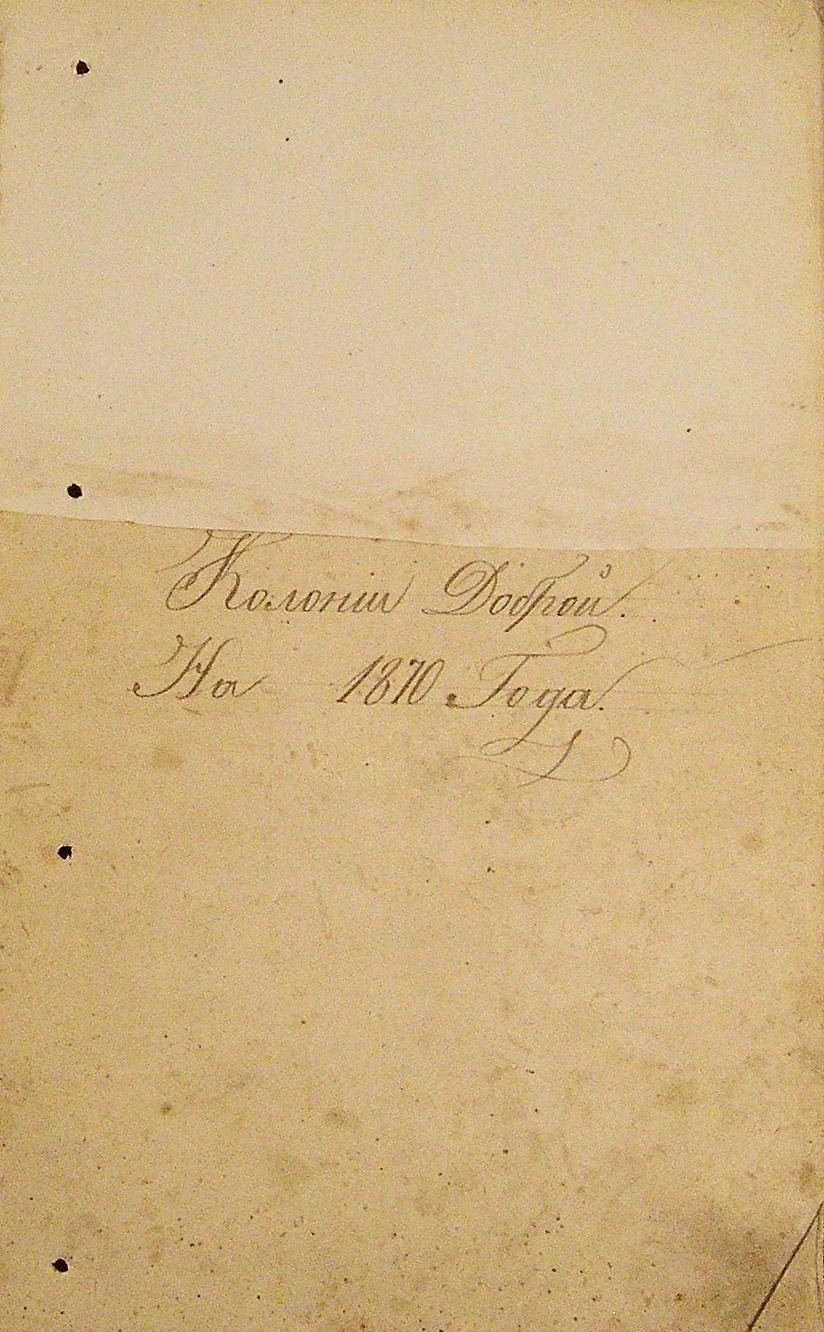 Колоніи Доброй.
На 1870 Года.